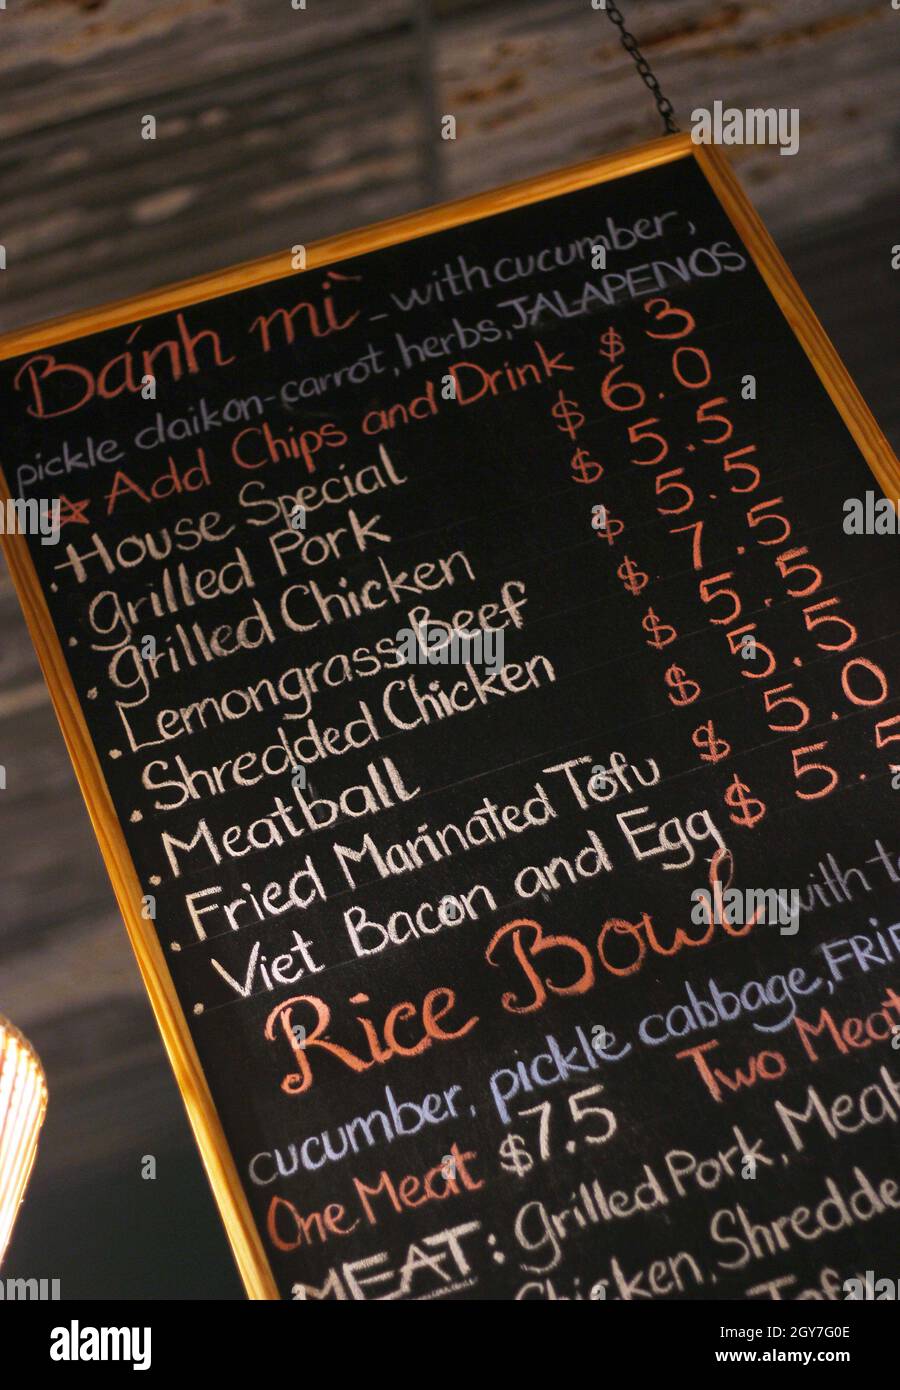 Bánh mì - with cucumber,
pickle daikon-carrot, herbs, JALAPENOS
☆ Add Chips and Drink $ 3
. House Special $ 6.0
. Grilled Pork $ 5.5
. Grilled Chicken $ 5.5
. Lemongrass Beef $ 7.5
. Shredded Chicken $ 5.5
. Meatball $ 5.5
. Fried Marinated Tofu $ 5.0
. Viet Bacon and Egg $ 5.5
Rice Bowl - with
cucumber, pickle cabbage,
One Meat $7.5 Two Meat
MEAT: Grilled Pork, Meat
Chicken, Shredde
Tofu
alamy
Image ID: 2GY7G0E
www.alamy.com